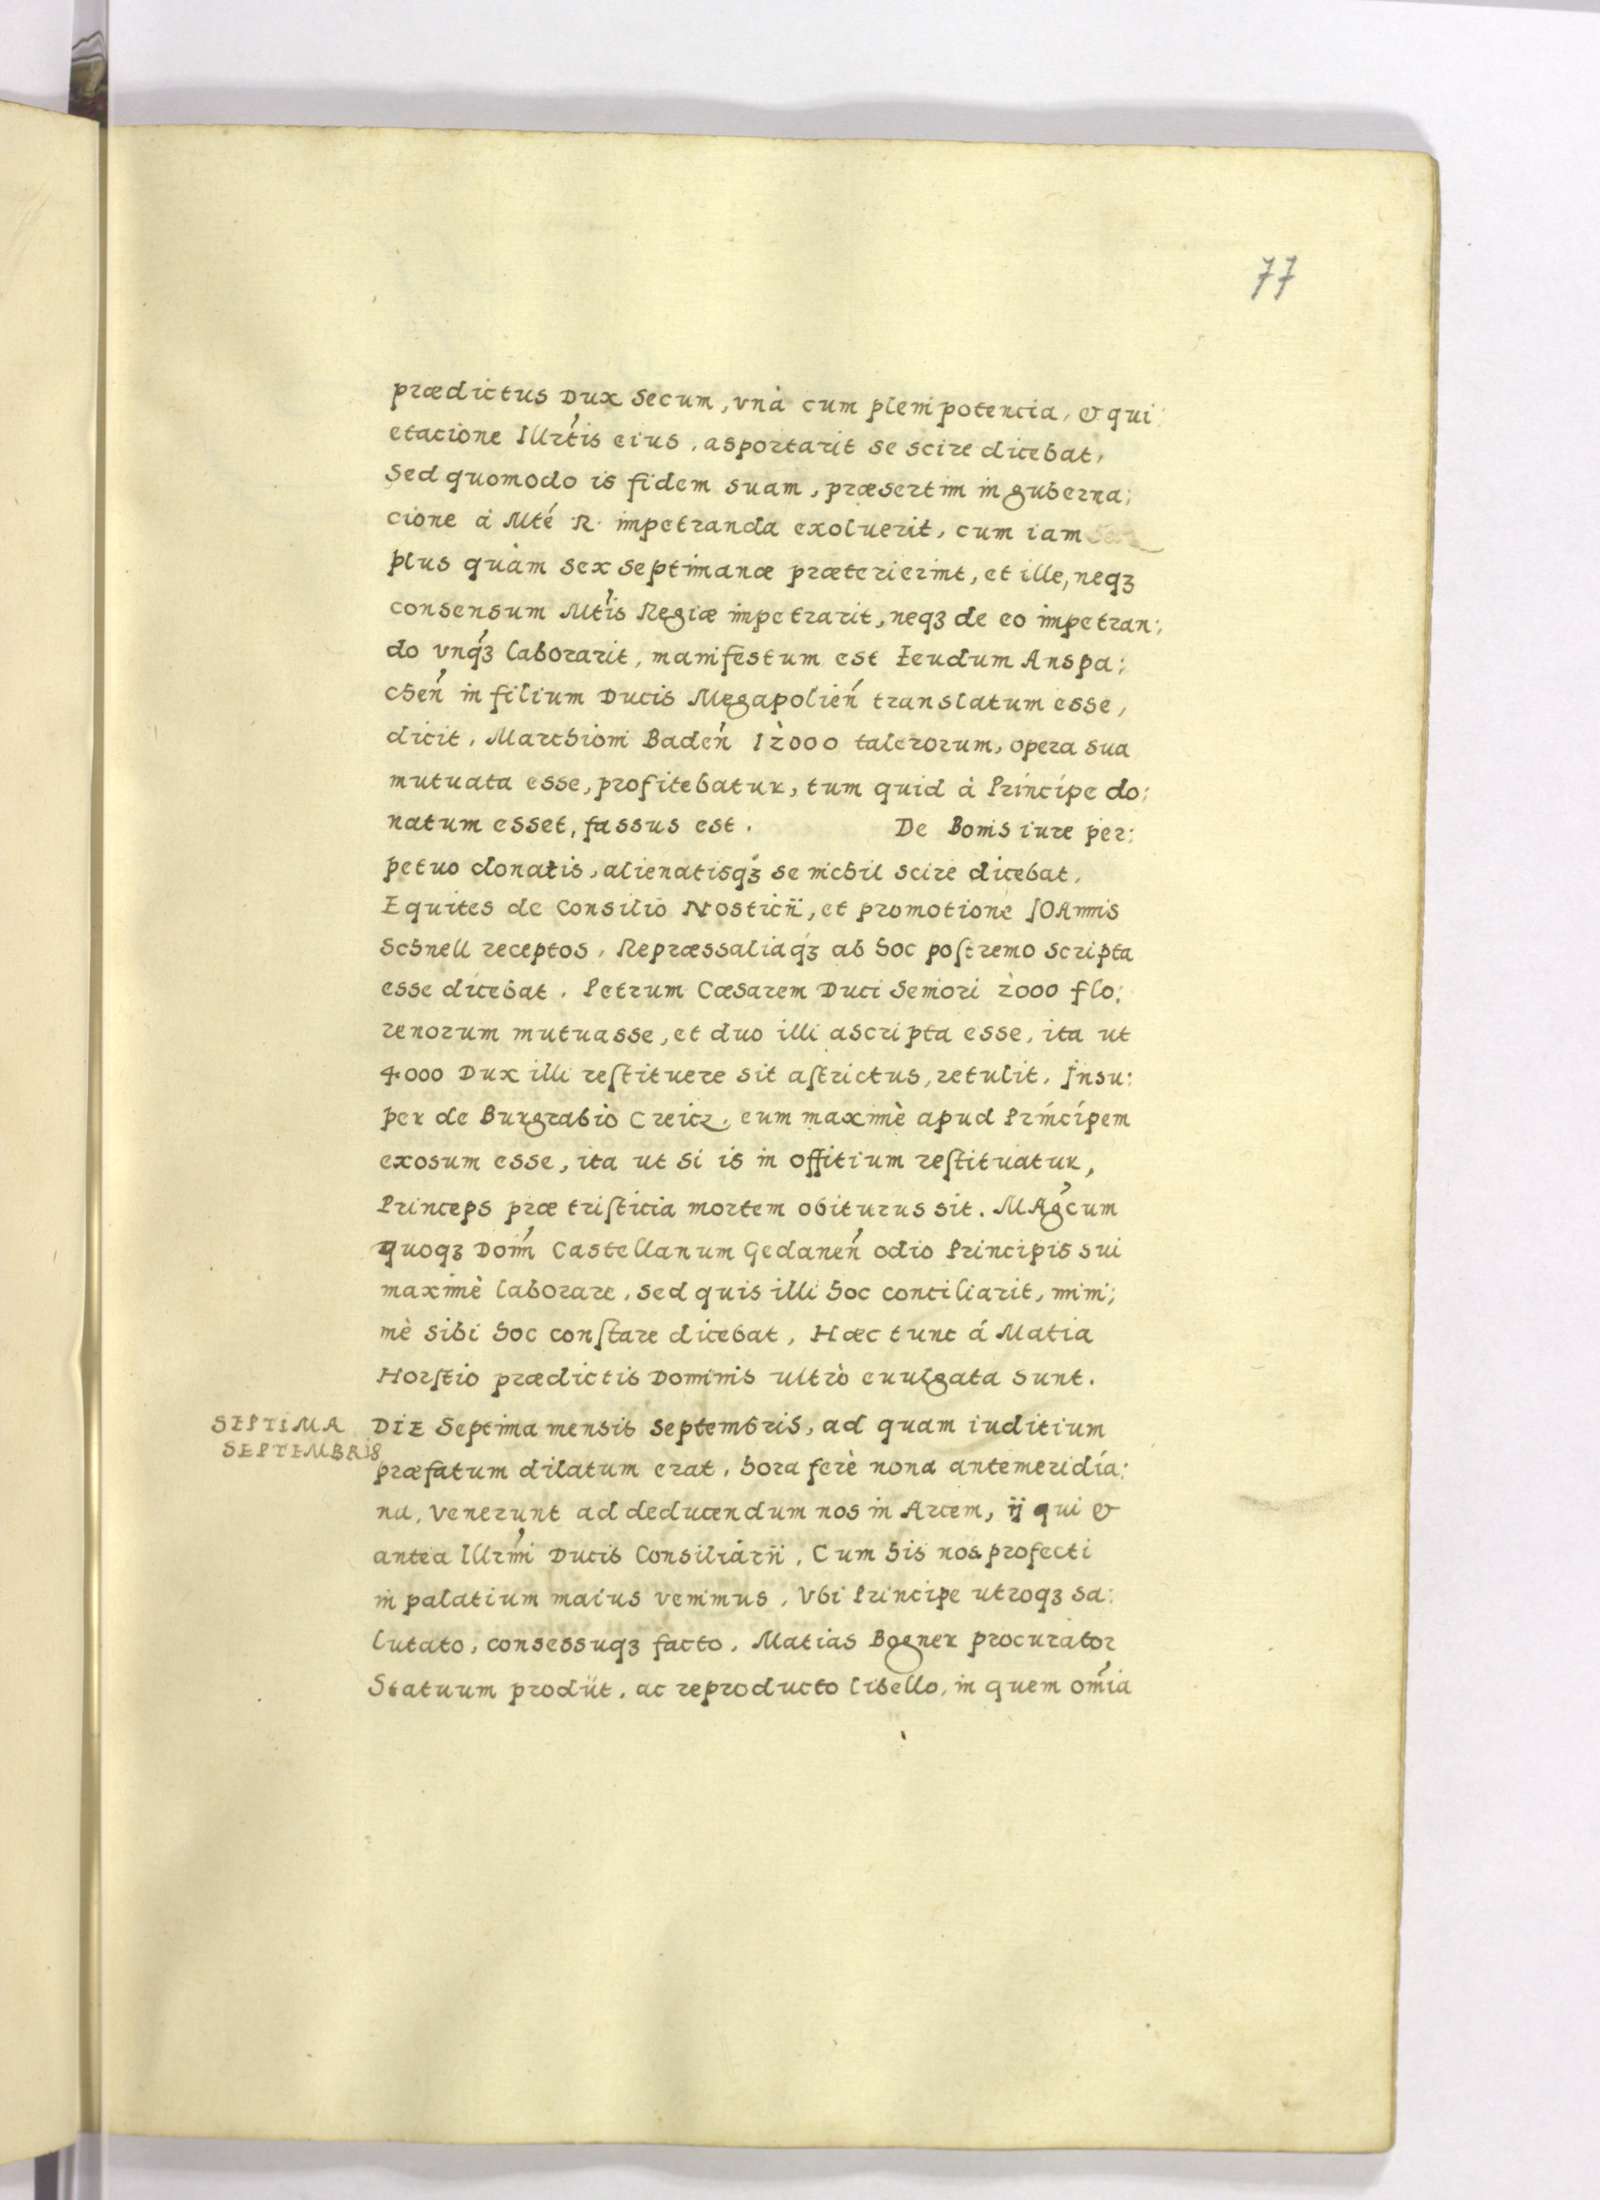 77
prædictus Dux secum, vnà cum plenipotencia, & qui:
etacione Illrtis eius, asportarit se scire dicebat,
Sed quomodo is fidem suam, præsertim in guberna:
cione á Mté R. impetranda exoluerit, cum iam
plus quàm sex septimanæ præterierint, et ille, neqꝫ
consensum Mtis Regiæ impetrarit, neqꝫ de eo impetran:
do vnqꝫ laborarit, manifestum est Feudum Anspa:
chen̄ in filium Ducis Megapolien̄ translatum esse,
dicit, Marchioni Baden̄ 12000 talerorum, opera sua
mutuata esse, profitebatur, tum quid à Principe do:
natum esset, fassus est. De Bonis iure per:
petuo donatis, alienatisqꝫ se nichil scire dicebat,
Equites de Consilio Nosticij, et promotione IOAnnis
Schnell receptos, Repræssaliaqꝫ ab hoc poſtremo scripta
esse dicebat. Petrum Cæsarem Duci Seniori 2000 flo:
renorum mutuasse, et duo illi ascripta esse, ita ut
4000 Dux illi reſtituere sit aſtrictus, retulit. Insu:
per de Burgrabio Creicz, eum maximè apud Principem
exosum esse, ita ut si is in offitium reſtituatur,
Princeps præ triſticia mortem obiturus sit. MAgcum
quoqꝫ Dom̄ Castellanum Gedanen̄ odio Principis sui
maximè laborare, sed quis illi hoc conciliarit, mini:
mè sibi hoc conſtare dicebat, Hæc tunc á Matia
Horſtio prædictis Dominis ultrò euulgata sunt.
SEPTIMA
SEPTEMBRIS
DIE Septima mensis Septembris, ad quam iuditium
præfatum dilatum erat, hora ferè nona antemeridia:
na, venerunt ad deducendum nos in Arcem, ij qui &
antea Illrmi Ducis Consiliàrij, Cum his nos profecti
in palatium maius venimus, Vbi Principe utroqꝫ sa:
lutato, consessuqꝫ facto, Matias Bogner procurator
Statuum prodijt, ac reproducto libello, in quem om̄ia